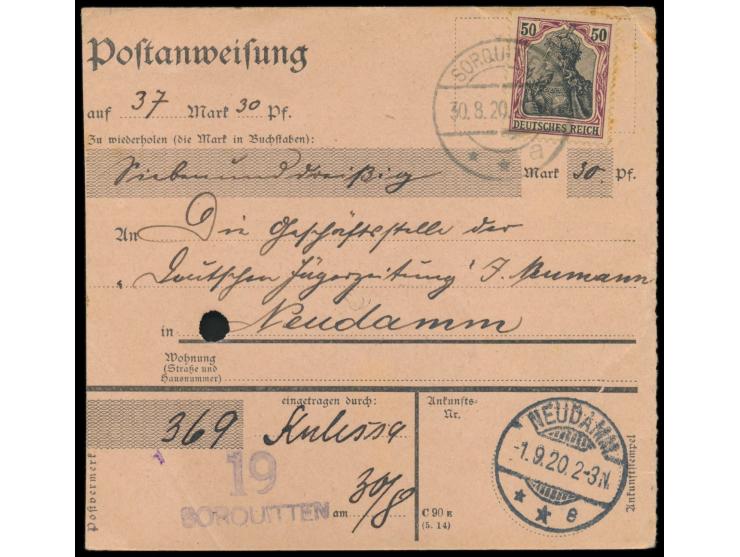 50 50
DEUTSCHES REICH
Postanweisung
SORQUI
30.8.20
a
auf 37 Mark 30 Pf.
Zu wiederholen (die Mark in Buchstaben):
Siebenunddreißig Mark 30 Pf.
An Die Geschäftsstelle der
"Deutschen Jägerzeitung" J. Neumann
in Neudamm
Wohnung
(Straße und
Hausnummer)
eingetragen durch:
Ankunfts-
Nr.
369 Kulessa
Postvermerk
19
SORQUITTEN
am 30/8
C 90 E
(5. 14)
NEUDAMM
-1.9.20. 2-3N.
e
Ankunftsstempel